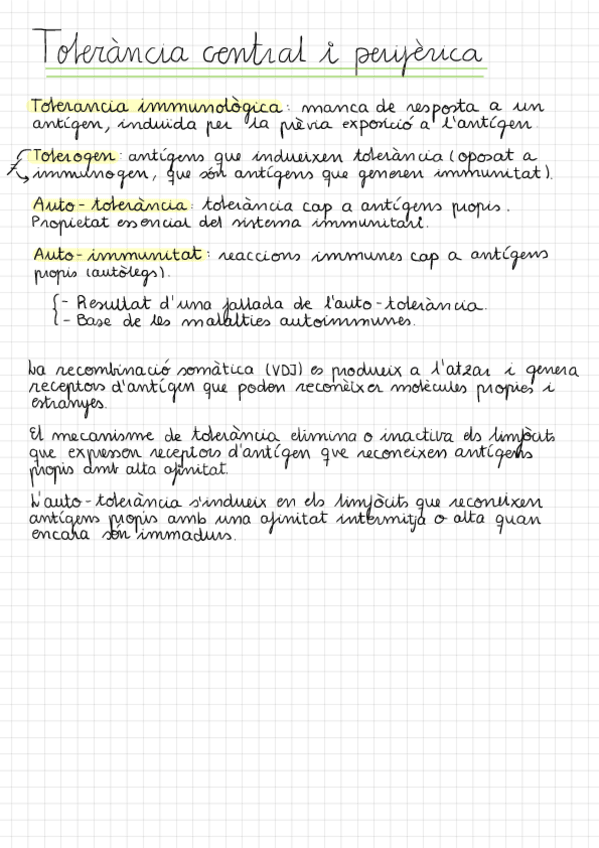 Tolerància central i perifèrica
Tolerancia immunològica: manca de resposta a un
antígen, induida per la prèvia exposició a l'antígen.
Tolerogen: antígens que indueixen tolerància (oposat a
immunogen, que són antígens que generen immunitat).
Auto-tolerància: tolerància cap a antígens propis.
Propietat essencial del sistema immunitari.
Auto-immunitat: reaccions immunes cap a antígens
propis (autòlegs).
- Resultat d'una fallada de l'auto-tolerància.
- Base de les malalties autoimmunes.
La recombinació somàtica (VDJ) es produeix a l'atzar i genera
receptors d'antígen que poden reconèixer molècules propies i
estranyes.
El mecanisme de tolerància elimina o inactiva els limfòcits
que expressen receptors d'antígen que reconeixen antígens
propis amb alta afinitat.
L'auto-tolerància s'indueix en els limfòcits que reconeixen
antígens propis amb una afinitat intermitja o alta quan
encara són immadurs.